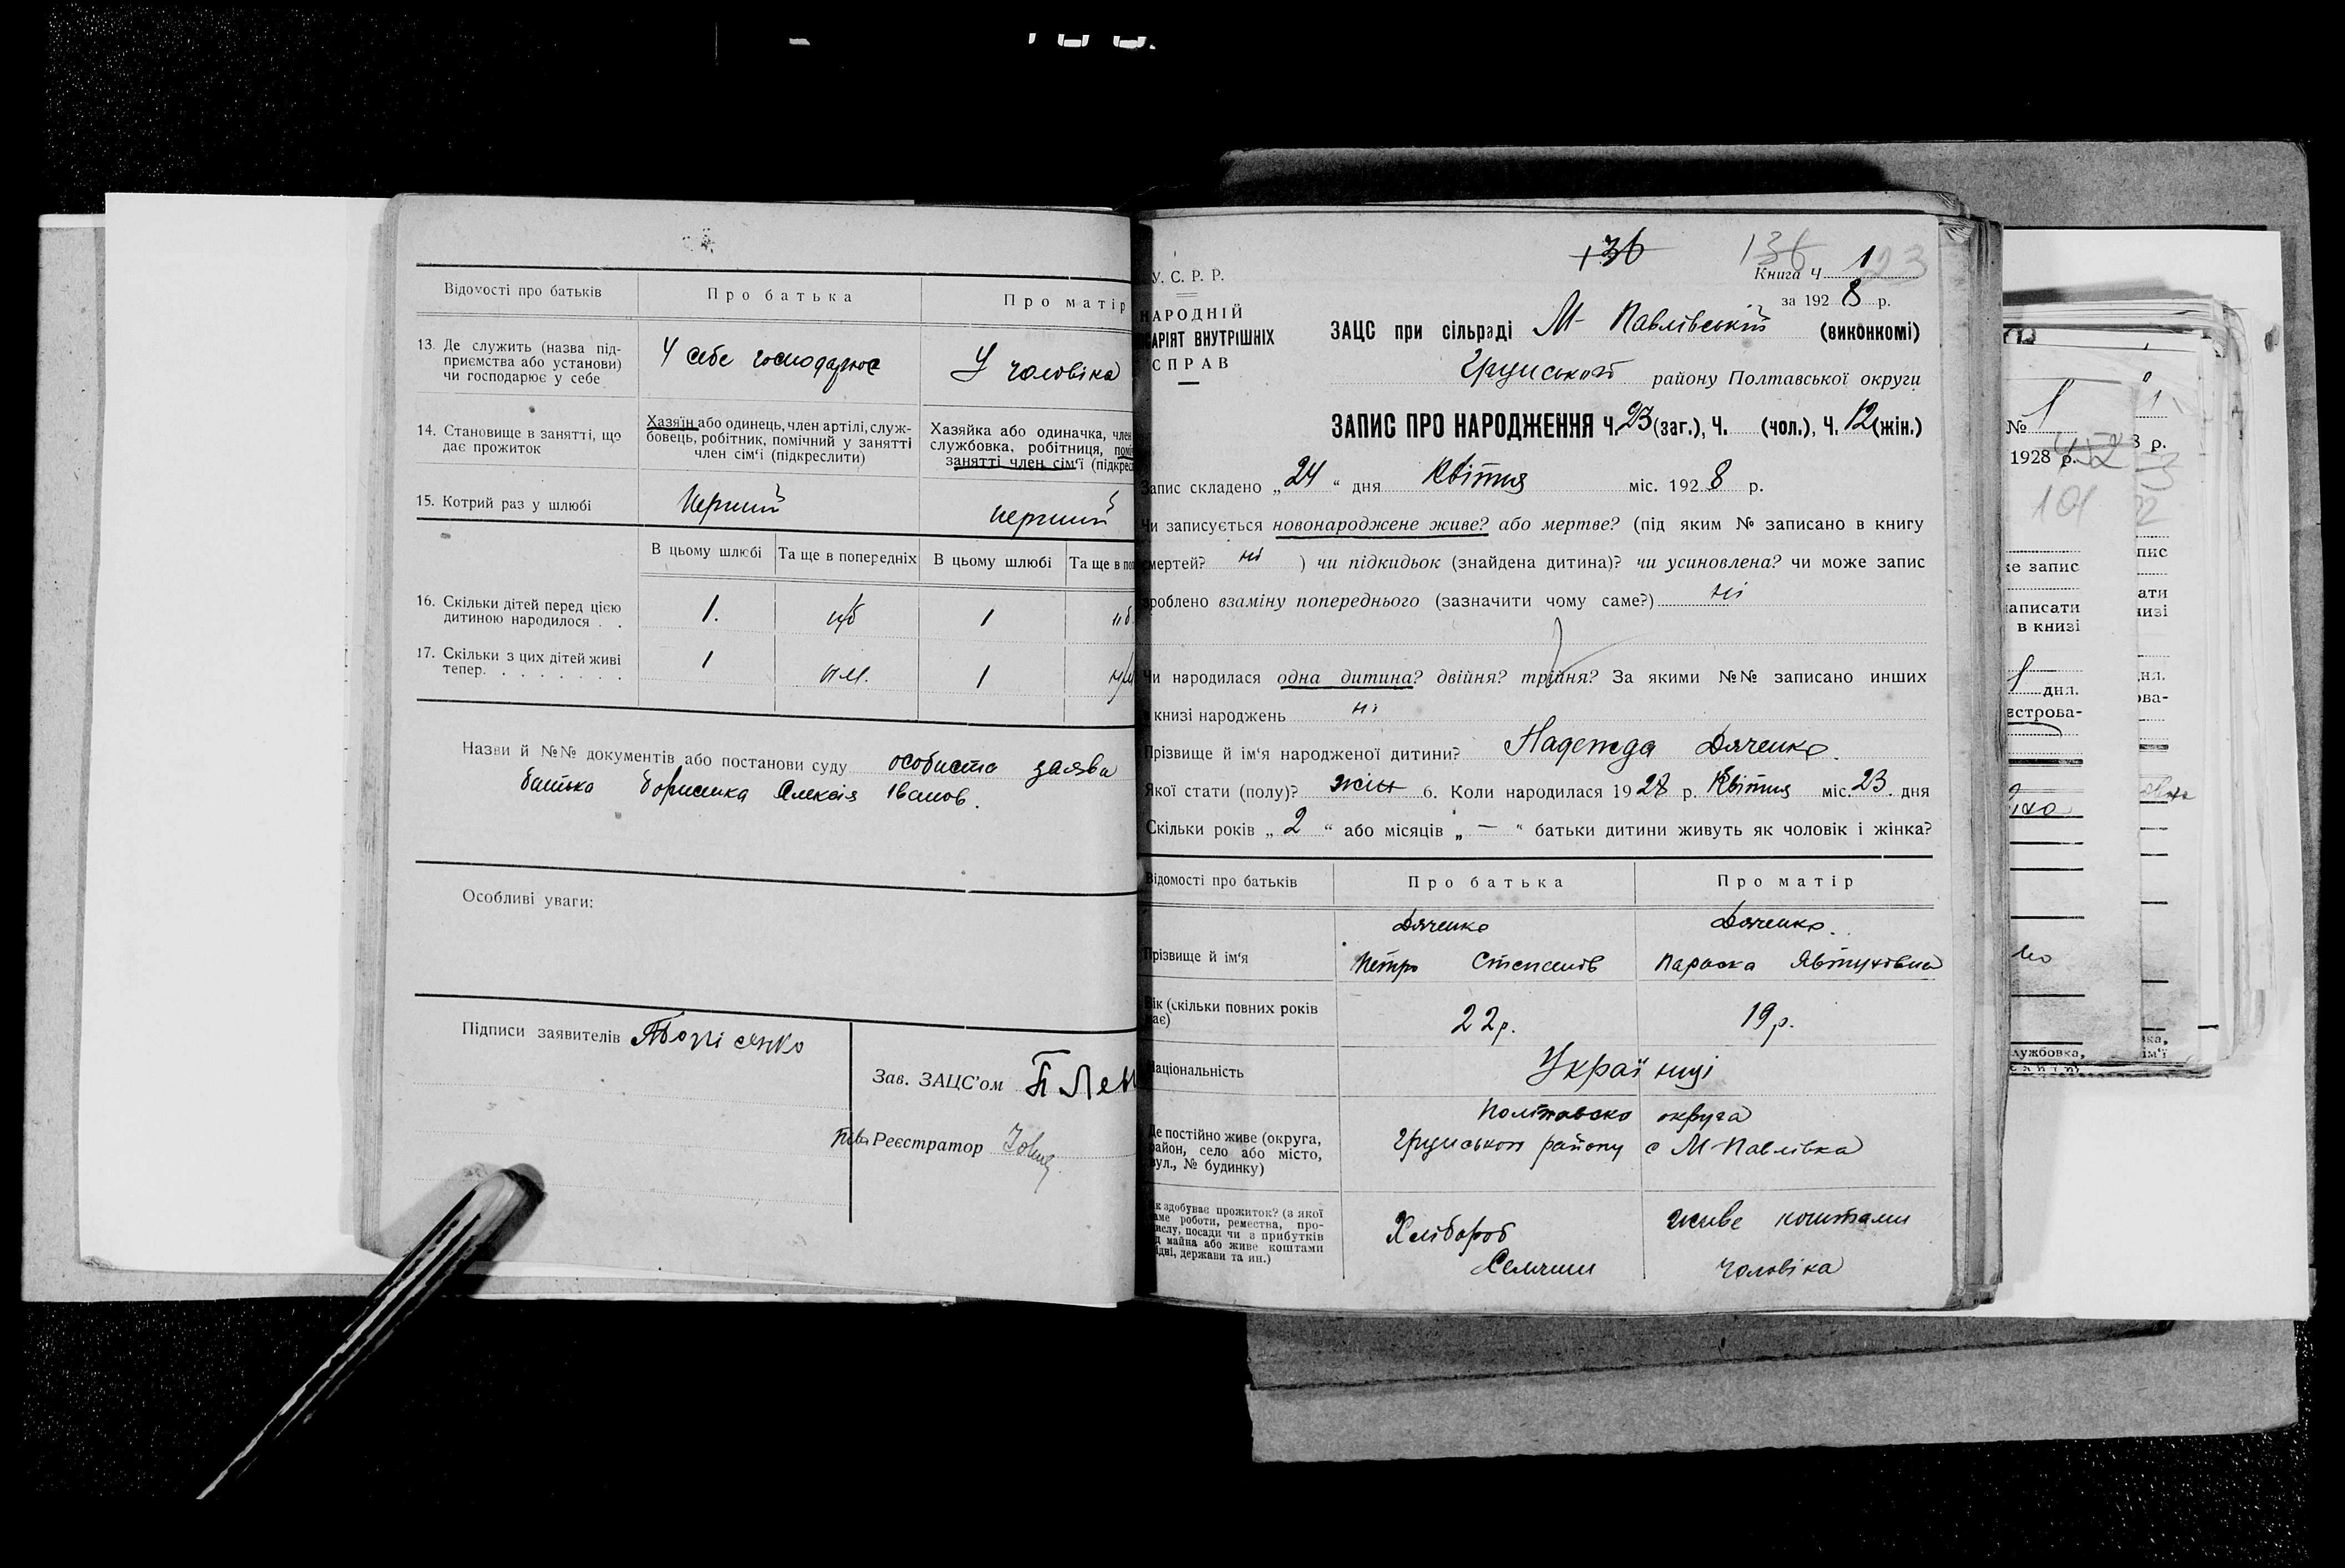 Відомості про батьків
Про батька
Про матір
13. Де служить (назва під-
приємства або установи)
чи господарює у себе
У себе господарює
У чоловіка
14. Становище в занятті, що
дає прожиток
Хазяїн або одинець, член артілі, служ-
бовець, робітник, помічний у занятті
член сім'ї (підкреслити)
Хазяйка або одиначка, член
службовка, робітниця,
занятті член сім'ї
15. Котрий раз у шлюбі
Перший
перший
В цьому шлюбі
Та ще в попередніх
В цьому шлюбі
Та ще в
16. Скільки дітей перед цією
дитиною народилося . .
1.
1
17. Скільки з цих дітей живі
тепер. . . . . . . .
1
1
Назви й №№ документів або постанови суду особиста заява
батька Борисенка Алексія Іванов.
Особливі уваги:
Підписи заявителів
Зав. ЗАЦС'ом
Реєстратор
136
136
123
У. С. Р. Р.
НАРОДНІЙ
ВНУТРІШНІХ
СПРАВ
Книга Ч 1
за 1928 р.
ЗАЦС при сільраді М-Павлівській (виконкомі)
Груньського району Полтавської округи
ЗАПИС ПРО НАРОДЖЕННЯ Ч. 23 (заг.), Ч. (чол.), Ч. 12 (жін.)
Запис складено „24“ дня Квітня міс. 1928 р.
Чи записується новонароджене живе? або мертве? (під яким № записано в книгу
смертей? ні ) чи підкидьок (знайдена дитина)? чи усиновлена? чи може запис
зроблено взаміну попереднього (зазначити чому саме?) ні
Чи народилася одна дитина? двійня? трійня? За якими №№ записано инших
в книзі народжень ні
Прізвище й ім'я народженої дитини? Надежда Дяченко.
Якої стати (полу)? жін 6. Коли народилася 1928 р. Квітня міс. 23. дня
Скільки років „2“ або місяців „—“ батьки дитини живуть як чоловік і жінка?
Відомості про батьків
Про батька
Про матір
Прізвище й ім'я
Дяченко
Петро Степанів
Дяченко.
Параска Явтухівна
Вік (скільки повних років
має)
22 р.
19 р.
Національність
Українці
Де постійно живе (округа,
район, село або місто,
вул., № будинку)
Полтавська округа
Груньського району с М-Павлівка
Як здобуває прожиток? (з якої
саме роботи, ремества, про-
мислу, посади чи з прибутків
від майна або живе коштами
рідні, держави та ин.)
Хлібороб
Селянин
живе коштами
чоловіка
№ 1
1928 р.
101
запис
записати
в книзі
дня.